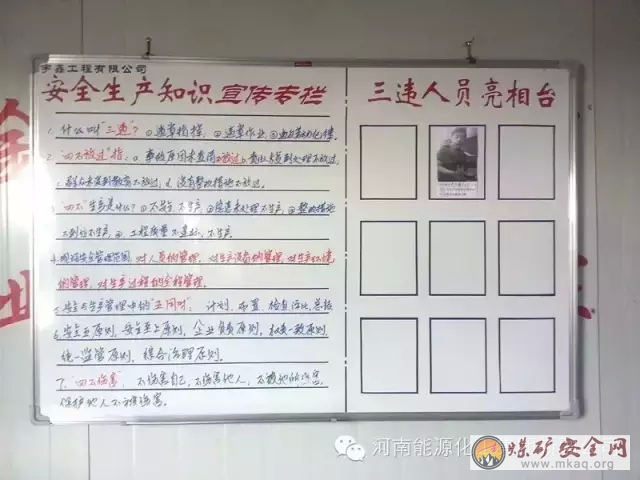 宇鑫工程有限公司
安全生产知识宣传专栏
三违人员亮相台
1. 什么叫“三违”? ①违章指挥, ②违章作业, ③违反劳动纪律。
2. “四不放过”指, a. 事故原因未查清不放过 b. 责任人员未处理不放过,
不放过, d. 没有整改措施不放过。
3. “四不”生产是什么? ①不安全不生产 ②隐患未处理不生产 ③整改措施
不到位不生产, ④工程质量不达标, 不生产。
4. 现场安全管理范围, 对人员的管理, 对生产设备的管理, 对生产环境
的管理, 对生产过程的全程管理。
5. 安全与生产管理中的“五同时”: 计划, 布置, 检查, 评比, 总结
6. 安全五原则, 安全至上原则, 企业负责原则, 一致原则
统一监管原则, 综合治理原则。
7. “四不伤害” 不伤害自己, 不伤害他人, 不被他人伤害,
保护他人不被伤害。
河南能源化
煤矿安全网
www.mkaq.org